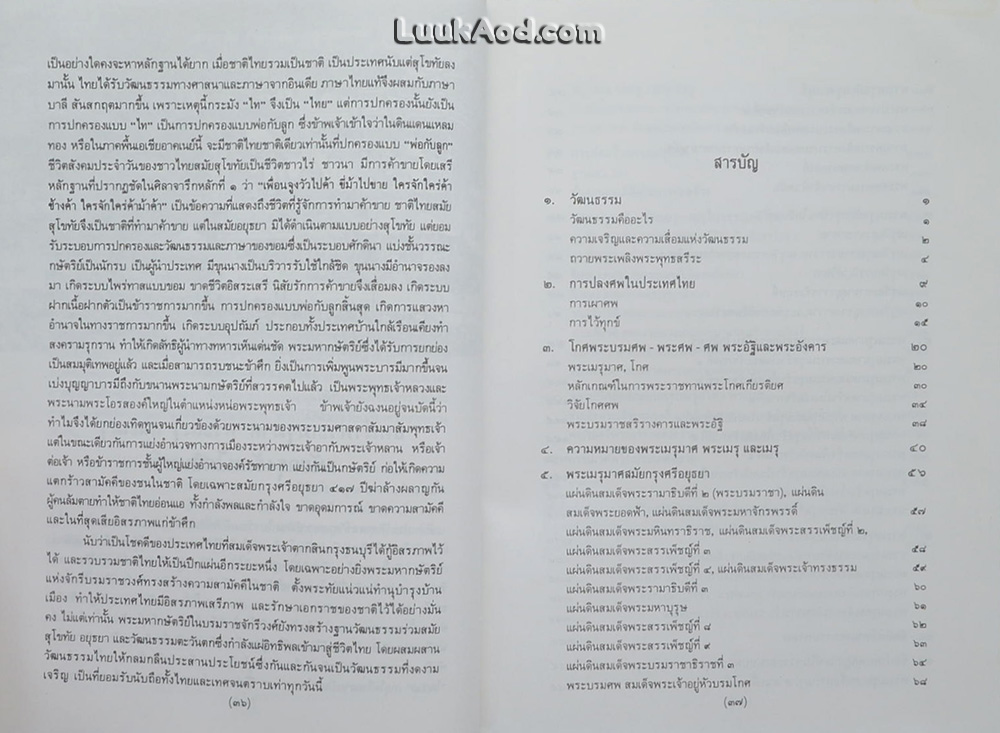 LuukAod.com
เป็นอย่างใดคงจะหาหลักฐานได้ยาก เมื่อชาติไทยรวมเป็นชาติ เป็นประเทศนับแต่สุโขทัยลง
มานั้น ไทยได้รับวัฒนธรรมทางศาสนาและภาษาจากอินเดีย ภาษาไทยแท้จึงผสมกับภาษา
บาลี สันสกฤตมากขึ้น เพราะเหตุนี้กระมัง "ไท" จึงเป็น "ไทย" แต่การปกครองนั้นยังเป็น
การปกครองแบบ "ไท" เป็นการปกครองแบบพ่อกับลูก ซึ่งข้าพเจ้าเข้าใจว่าในดินแดนแหลม
ทอง หรือในภาคพื้นเอเชียอาคเนย์นี้ จะมีชาติไทยชาติเดียวเท่านั้นที่ปกครองแบบ "พ่อกับลูก"
ชีวิตสังคมประจำวันของชาวไทยสมัยสุโขทัยเป็นชีวิตชาวไร่ ชาวนา มีการค้าขายโดยเสรี
หลักฐานที่ปรากฏชัดในศิลาจารึกหลักที่ ๑ ว่า "เพื่อนจูงวัวไปค้า ขี่ม้าไปขาย ใครจักใคร่ค้า
ช้างค้า ใครจักใคร่ค้าม้าค้า" เป็นข้อความที่แสดงถึงชีวิตที่รู้จักการทำมาค้าขาย ชาติไทยสมัย
สุโขทัยจึงเป็นชาติที่ทำมาค้าขาย แต่ในสมัยอยุธยา มิได้ดำเนินตามแบบอย่างสุโขทัย แต่ยอม
รับระบอบการปกครองและวัฒนธรรมและภาษาของขอมซึ่งเป็นระบอบศักดินา แบ่งชั้นวรรณะ
กษัตริย์เป็นนักรบ เป็นผู้นำประเทศ มีขุนนางเป็นบริวารรับใช้ใกล้ชิด ขุนนางมีอำนาจรองลง
มา เกิดระบบไพร่ทาสแบบขอม ขาดชีวิตอิสระเสรี นิสัยรักการค้าขายจึงเสื่อมลง เกิดระบบ
ฝากเนื้อฝากตัวเป็นข้าราชการมากขึ้น การปกครองแบบพ่อกับลูกสิ้นสุด เกิดการแสวงหา
อำนาจในทางราชการมากขึ้น เกิดระบบอุปถัมภ์ ประกอบทั้งประเทศบ้านใกล้เรือนเคียงทำ
สงครามรุกราน ทำให้เกิดลัทธิผู้นำทางทหารเห็นเด่นชัด พระมหากษัตริย์ซึ่งได้รับการยกย่อง
เป็นสมมุติเทพอยู่แล้ว และเมื่อสามารถรบชนะข้าศึก ยิ่งเป็นการเพิ่มพูนพระบารมีมากขึ้นจน
เบ่งบุญญาบารมีถึงกับขนานพระนามกษัตริย์ที่สวรรคตไปแล้ว เป็นพระพุทธเจ้าหลวงและ
พระนามพระโอรสองค์ใหญ่ในตำแหน่งหน่อพระพุทธเจ้า ข้าพเจ้ายังฉงนอยู่จนบัดนี้ว่า
ทำไมจึงได้ยกย่องเทิดทูนจนเกี่ยวข้องด้วยพระนามของพระบรมศาสดาสัมมาสัมพุทธเจ้า
แต่ในขณะเดียวกันการแย่งอำนวจทางการเมืองระหว่างพระเจ้าอากับพระเจ้าหลาน หรือเจ้า
ต่อเจ้า หรือข้าราชการชั้นผู้ใหญ่แย่งอำนาจองค์รัชทายาท แย่งกันเป็นกษัตริย์ ก่อให้เกิดความ
แตกร้าวสามัคคีของชนในชาติ โดยเฉพาะสมัยกรุงศรีอยุธยา ๔๑๗ ปีฆ่าล้างผลาญกัน
ผู้คนล้มตายทำให้ชาติไทยอ่อนแอ ทั้งกำลังพลและกำลังใจ ขาดอุดมการณ์ ขาดความสามัคคี
และในที่สุดเสียอิสรภาพแก่ข้าศึก
นับว่าเป็นโชคดีของประเทศไทยที่สมเด็จพระเจ้าตากสินกรุงธนบุรีได้กู้อิสรภาพไว้
ได้ และรวบรวมชาติไทยให้เป็นปึกแผ่นอีกระยะหนึ่ง โดยเฉพาะอย่างยิ่งพระมหากษัตริย์
แห่งจักรีบรมราชวงศ์ทรงสร้างความสามัคคีในชาติ ตั้งพระทัยแน่วแน่ทำนุบำรุงบ้าน
เมือง ทำให้ประเทศไทยมีอิสรภาพเสรีภาพ และรักษาเอกราชของชาติไว้ได้อย่างมั่น
คง ไม่แต่เท่านั้น พระมหากษัตริย์ในบรมราชจักรีวงศ์ยังทรงสร้างฐานวัฒนธรรมร่วมสมัย
สุโขทัย อยุธยา และวัฒนธรรมตะวันตกซึ่งกำลังแผ่อิทธิพลเข้ามาสู่ชีวิตไทย โดยผสมผสาน
วัฒนธรรมไทยให้กลมกลืนประสานประโยชน์ซึ่งกันและกันจนเป็นวัฒนธรรมที่งดงาม
เจริญ เป็นที่ยอมรับนับถือทั้งไทยและเทศจนตราบเท่าทุกวันนี้
(๓๖)
สารบัญ
๑. วัฒนธรรม ๑
วัฒนธรรมคืออะไร ๑
ความเจริญและความเสื่อมแห่งวัฒนธรรม ๒
ถวายพระเพลิงพระพุทธสรีระ ๔
๒. การปลงศพในประเทศไทย ๙
การเผาศพ ๑๐
การไว้ทุกข์ ๑๕
๓. โกศพระบรมศพ - พระศพ - ศพ พระอัฐิและพระอังคาร ๒๐
พระเมรุมาศ, โกศ ๒๐
หลักเกณฑ์ในการพระราชทานพระโกศเกียรติยศ ๓๐
วิจัยโกศศพ ๓๔
พระบรมราชสรีรางคารและพระอัฐิ ๓๘
๔. ความหมายของพระเมรุมาศ พระเมรุ และเมรุ ๔๐
๕. พระเมรุมาศสมัยกรุงศรีอยุธยา ๕๖
แผ่นดินสมเด็จพระรามาธิบดีที่ ๒ (พระบรมราชา), แผ่นดิน
สมเด็จพระยอดฟ้า, แผ่นดินสมเด็จพระมหาจักรพรรดิ์ ๕๗
แผ่นดินสมเด็จพระมหินทราธิราช, แผ่นดินสมเด็จพระสรรเพ็ชญ์ที่ ๒,
แผ่นดินสมเด็จพระสรรเพ็ชญ์ที่ ๓ ๕๘
แผ่นดินสมเด็จพระสรรเพ็ชญ์ที่ ๔, แผ่นดินสมเด็จพระเจ้าทรงธรรม ๕๙
แผ่นดินสมเด็จพระรามาธิบดีที่ ๓ ๖๐
แผ่นดินสมเด็จพระมหาบุรุษ ๖๑
แผ่นดินสมเด็จพระสรรเพ็ชญ์ที่ ๘ ๖๒
แผ่นดินสมเด็จพระสรรเพ็ชญ์ที่ ๙ ๖๓
แผ่นดินสมเด็จพระบรมราชาธิราชที่ ๓ ๖๔
พระบรมศพ สมเด็จพระเจ้าอยู่หัวบรมโกศ ๖๘
(๓๗)